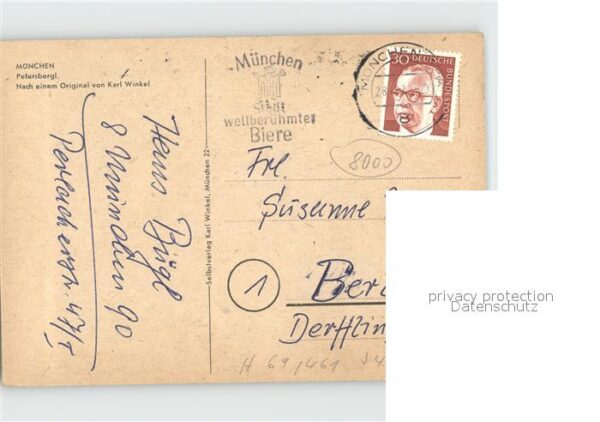 MÜNCHEN
Petersbergl
Nach einem Original von Karl Winkel
Hans Bügl
8 München 90
Perlacherstr. 47/I
Selbstverlag Karl Winkel, München 22
München
Stadt
weltberühmter
Biere
MÜNCHEN
28
8
30 DEUTSCHE BUNDESPOST
8000
Frl.
Susanne
1
Berl
Derffling
H 69/461
privacy protection
Datenschutz